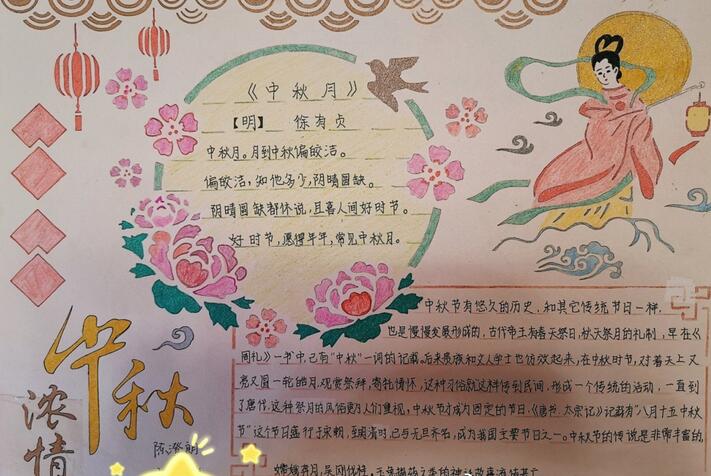 《中秋月》
【明】 徐有贞
中秋月。月到中秋偏皎洁。
偏皎洁,知他多少,阴晴圆缺。
阴晴圆缺都休说,且喜人间好时节。
好时节,愿得年年,常见中秋月。
中秋节有悠久的历史,和其它传统节日一样,
也是慢慢发展形成的,古代帝王有春天祭日,秋天祭月的礼制,早在《
周礼》一书中,已有"中秋"一词的记载。后来贵族和文人学士也仿效起来,在中秋时节,对着天上又
亮又圆一轮皓月,观赏祭拜,寄托情怀,这种习俗就这样传到民间,形成一个传统的活动,一直到
了唐代,这种祭月的风俗更为人们重视,中秋节才成为固定的节日,《唐书·太宗记》记载有"八月十五中秋
节"这个节日盛行于宋朝,至明清时,已与元旦齐名,成为我国主要节日之一。中秋节的传说是非常丰富的,
嫦娥奔月,吴刚伐桂,玉兔捣药之类的神话故事流传甚广
中秋
浓情